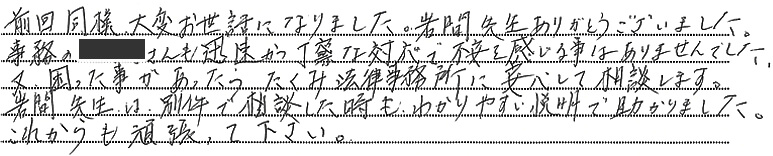 前回同様、大変お世話になりました。岩間先生ありがとうございました。
事務の さんも迅速かつ丁寧な対応で不安を感じる事はありませんでした。
又、困った事があったら、たくみ法律事務所に安心して相談します。
岩間先生は、別件で相談した時も、わかりやすい説明で助かりました。
これからも頑張って下さい。